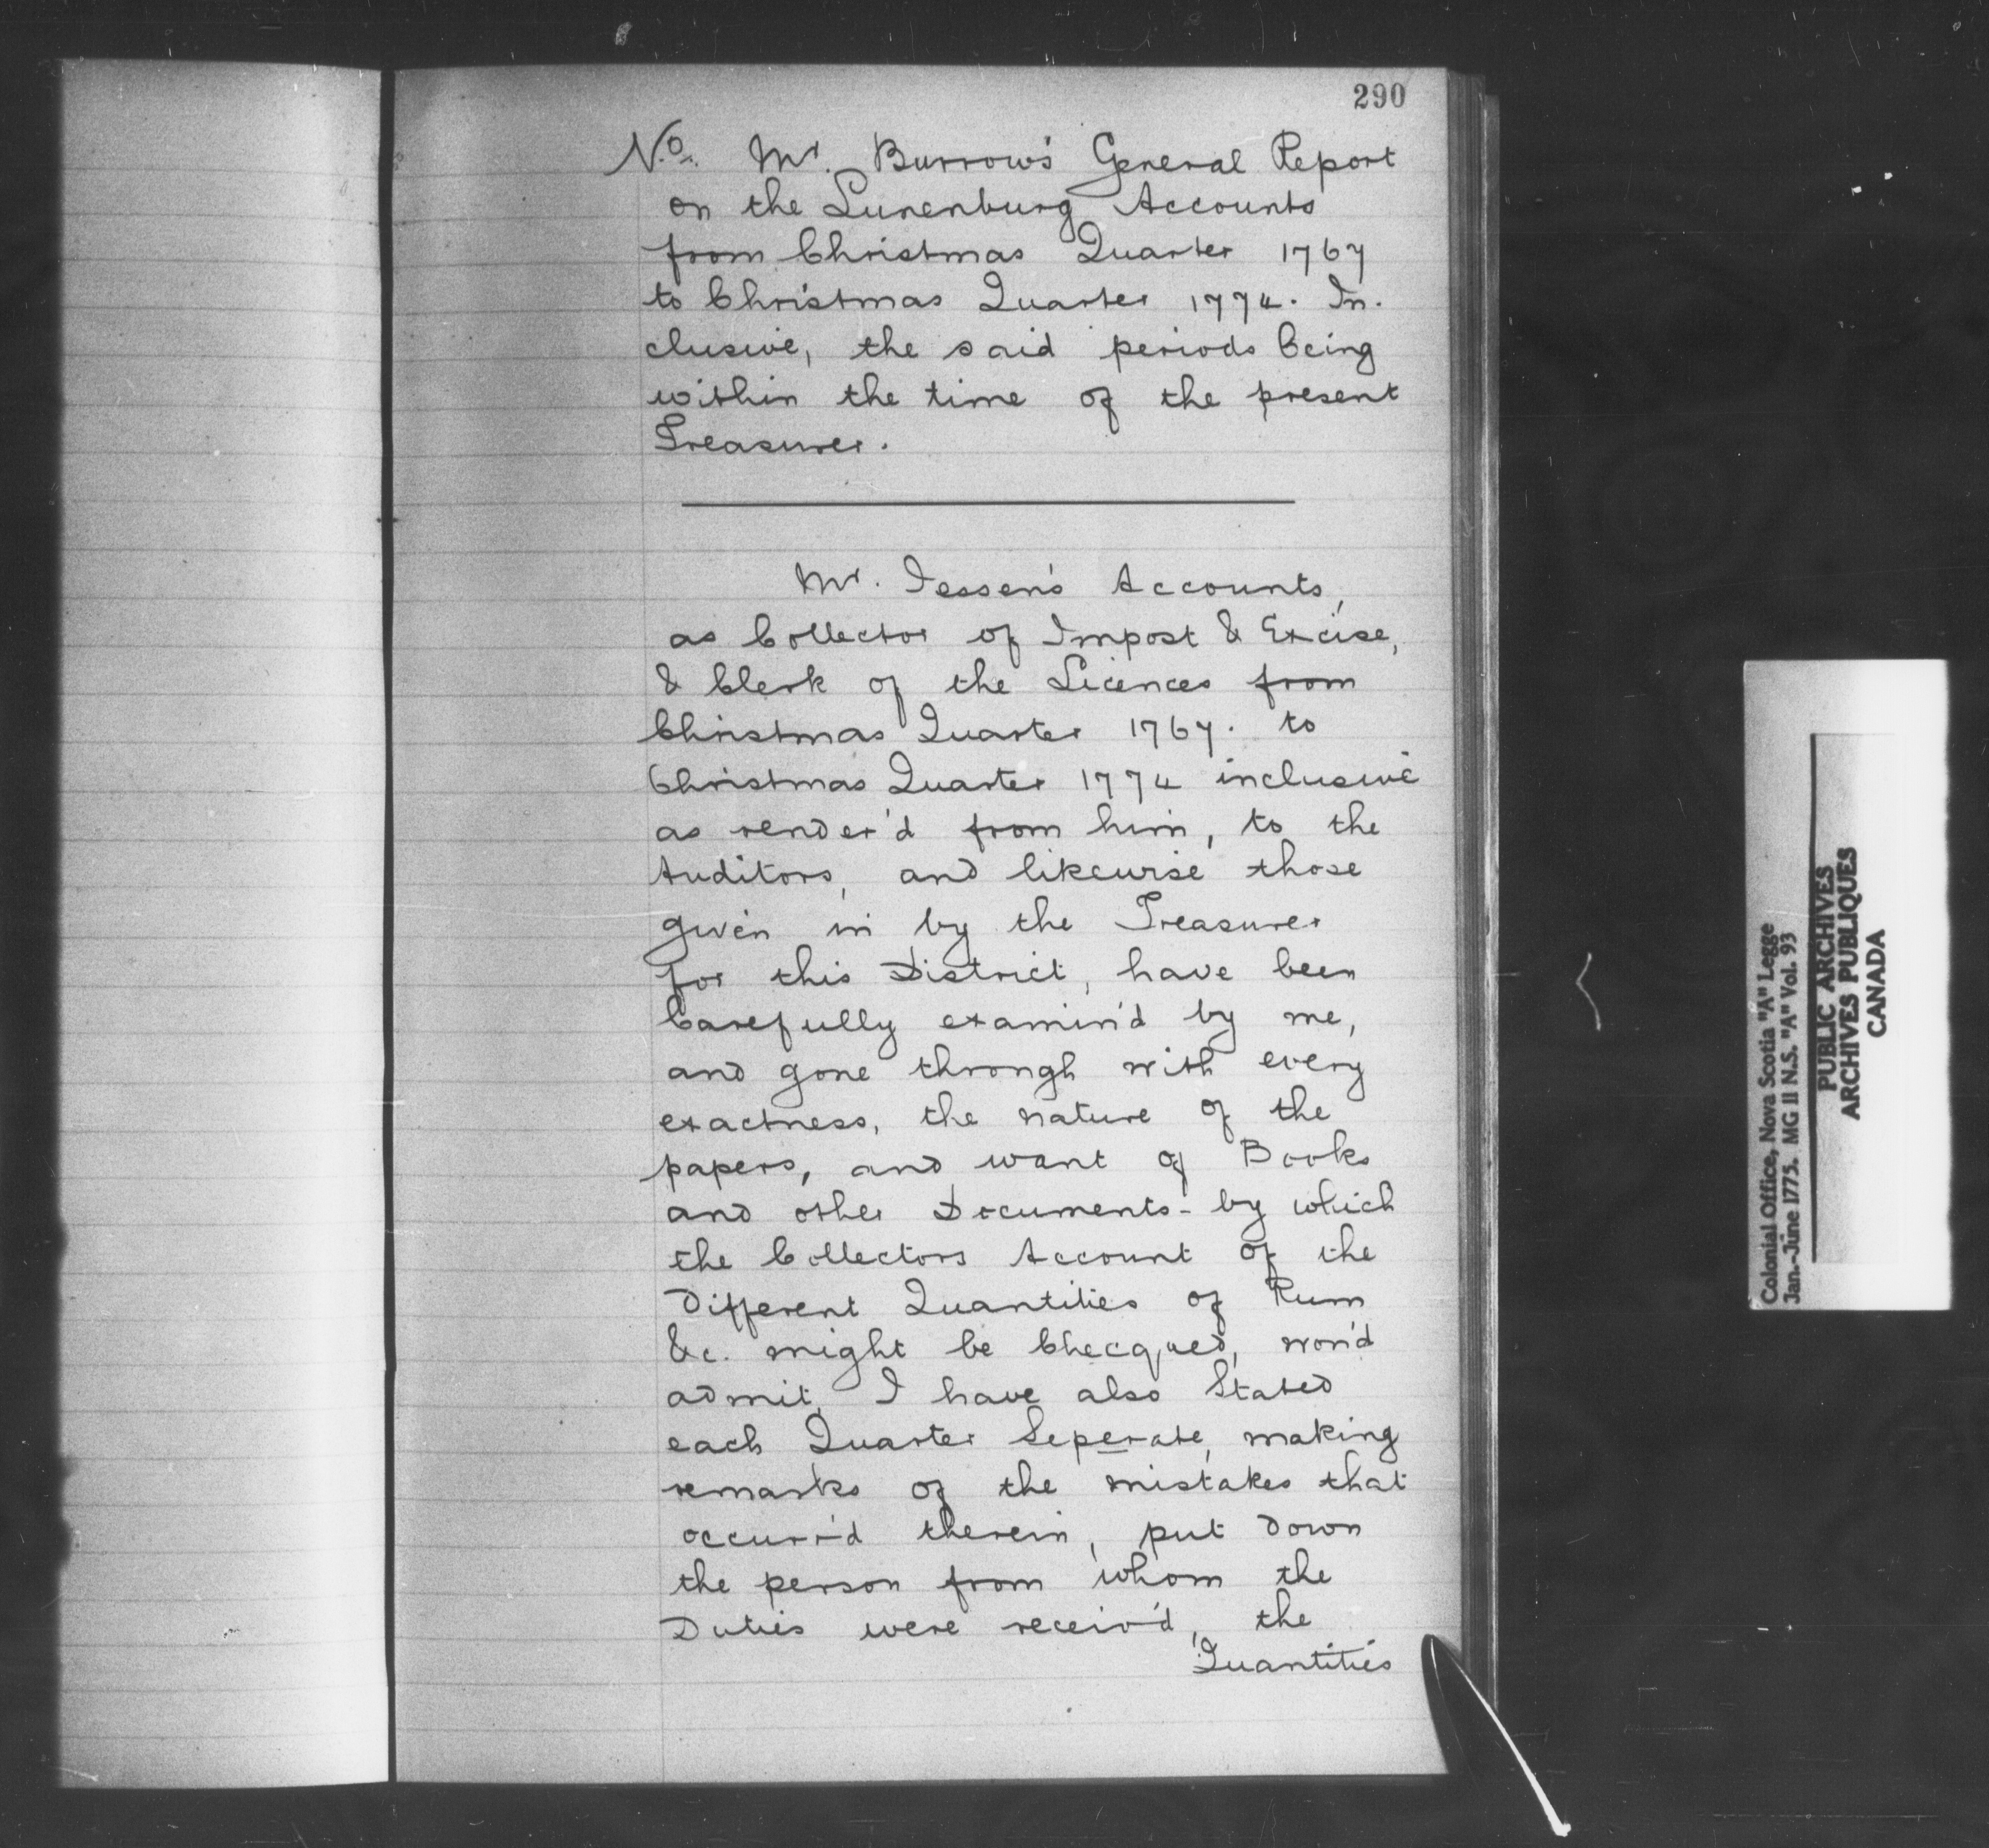 290
No. Mr. Burrow's General Report
on the Lunenburg Accounts
from Christmas Quarter 1767
to Christmas Quarter 1774. In-
clusive, the said periods being
within the time of the present
Treasurer.
Mr. Jessen's Accounts,
as Collector of Impost & Excise,
& Clerk of the Licences from
Christmas Quarter 1767. to
Christmas Quarter 1774 inclusive
as render'd from him, to the
Auditors, and likewise those
given in by the Treasurer
for this District, have been
Carefully examin'd by me,
and gone through with every
exactness, the nature of the
papers, and want of Books
and other Documents - by which
the Collectors Account of the
Different Quantities of Rum
&c. might be Checqued, wou'd
admit, I have also Stated
each Quarter Seperate, making
remarks of the mistakes that
occurr'd therein, put down
the person from whom the
Duties were receiv'd, the
Quantities
Colonial Office, Nova Scotia "A" Legge
Jan.-June 1775. MG 11 N.S. "A" Vol. 93
PUBLIC ARCHIVES
ARCHIVES PUBLIQUES
CANADA